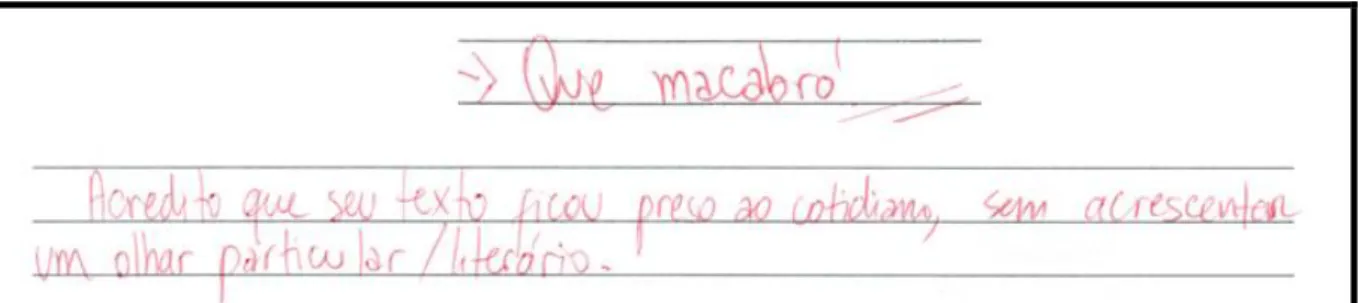 → Que macabro!
Acredito que seu texto ficou preso ao cotidiano, sem acrescentar
um olhar particular/literário.